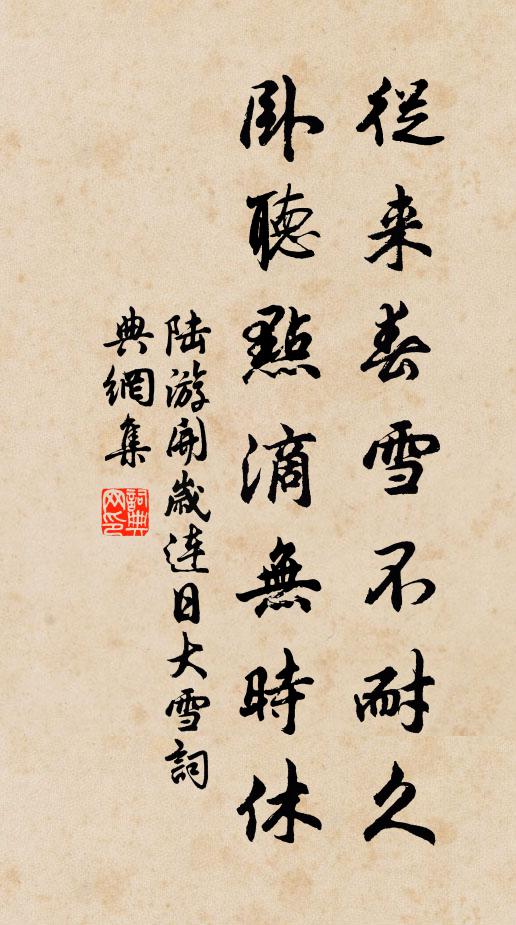 從来春雪不耐久
卧聽點滴無時休
陆游開歲连日大雪詞
典網集
詞典網印